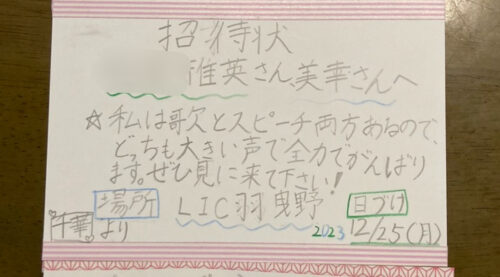 招待状
雅英さん、美幸さんへ
☆私は歌とスピーチ両方あるので、
どっちも大きい声で全力でがんばり
ます。ぜひ見に来て下さい!
場所 LIC羽曳野 日づけ
千華より 2023 12/25(月)